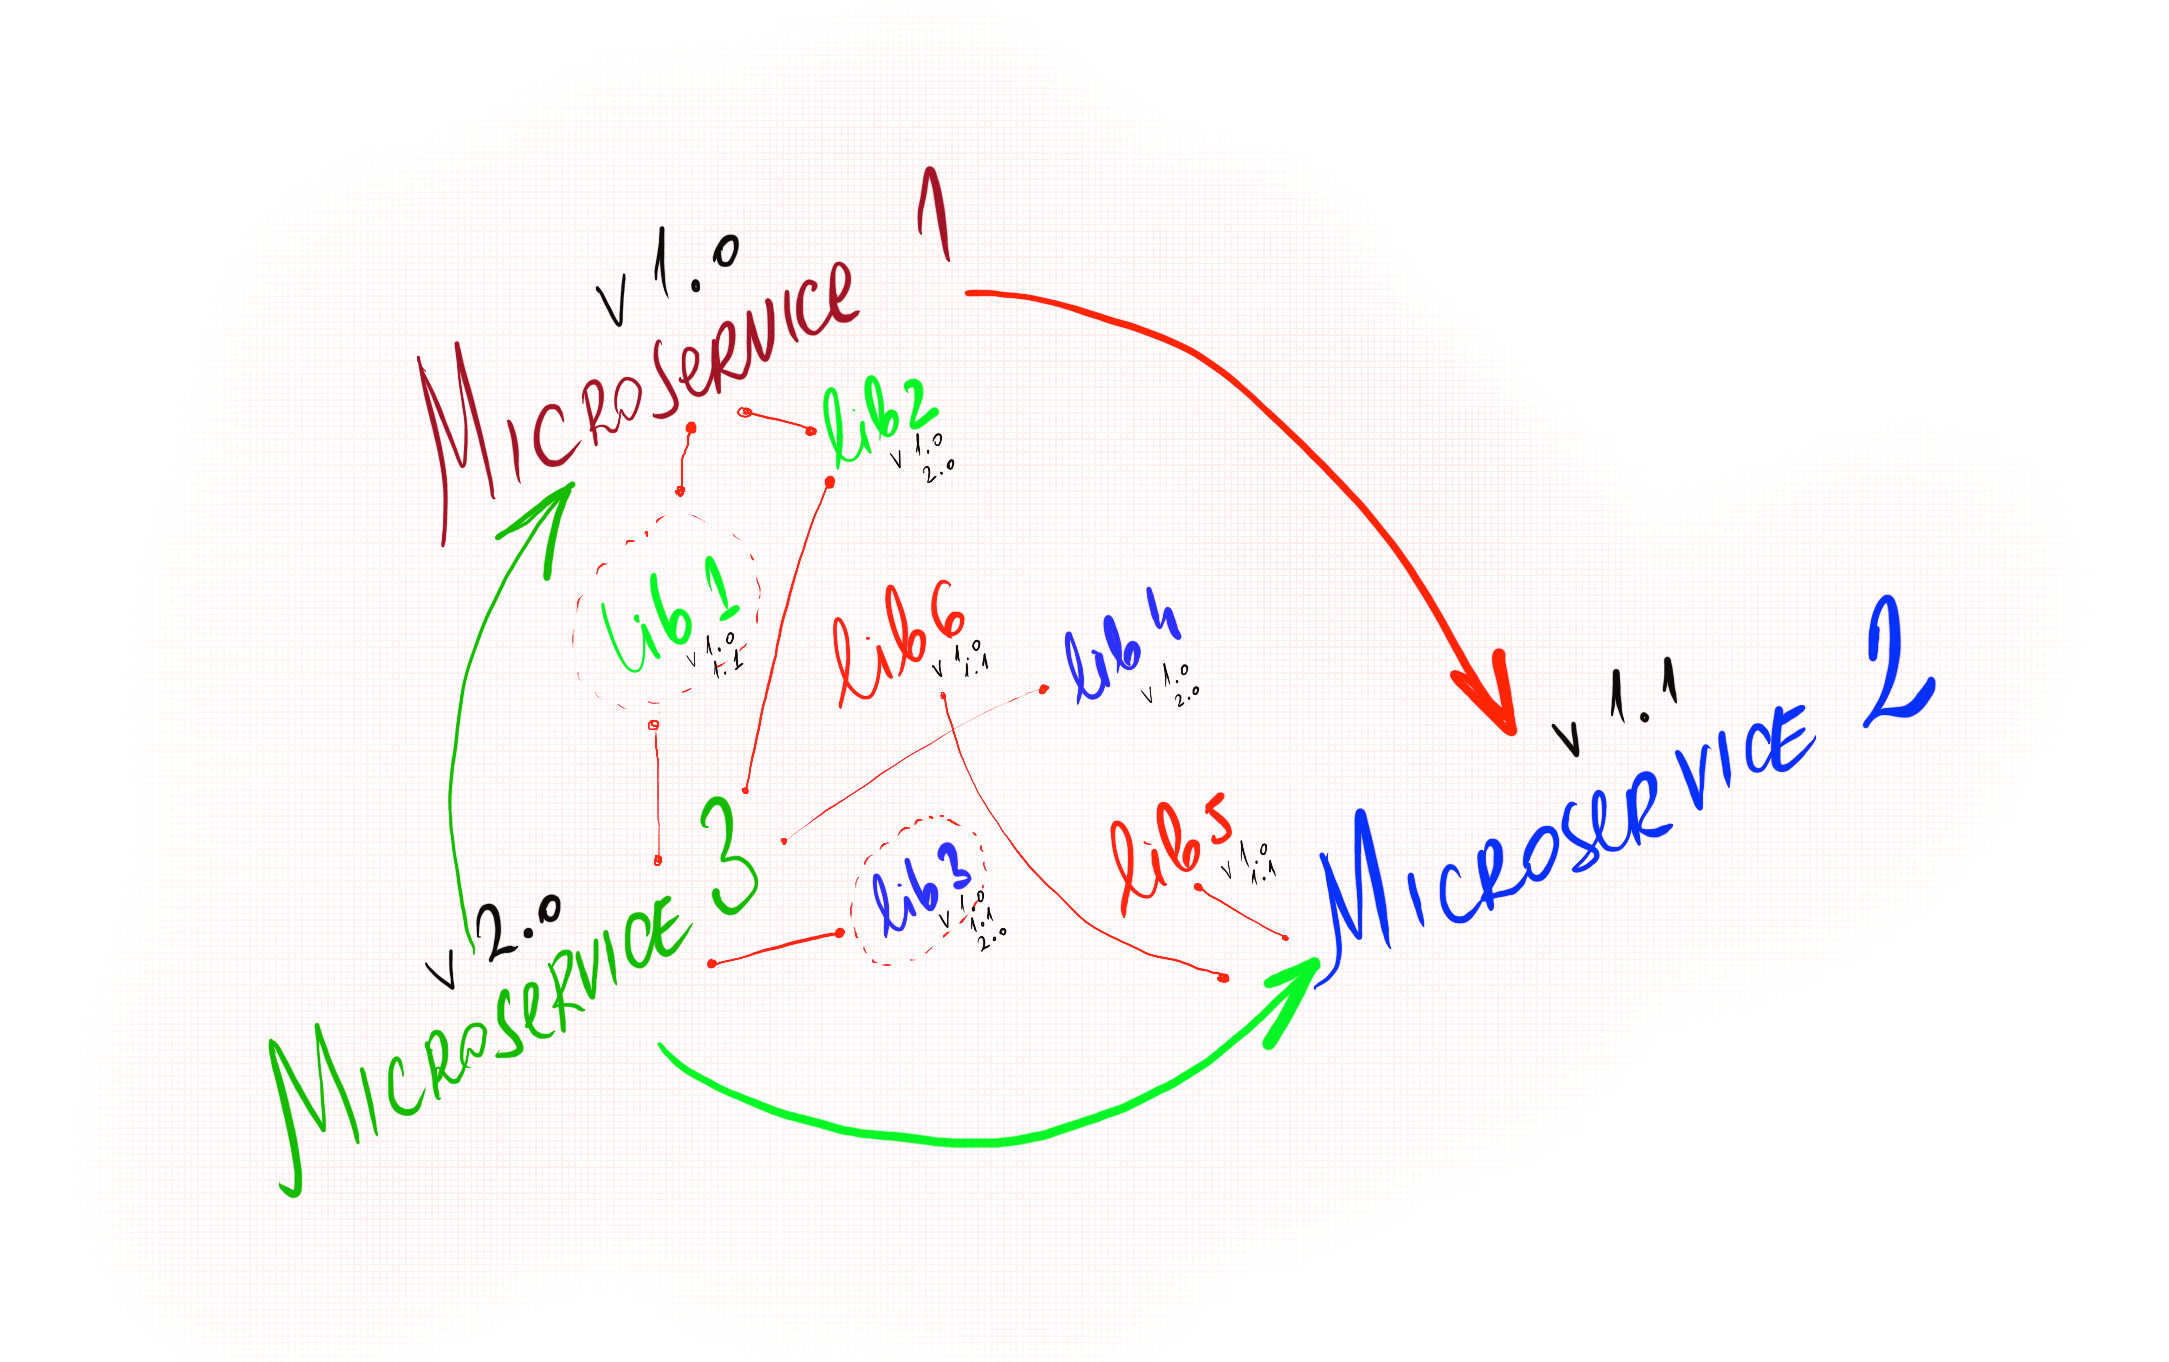 v 1.0
Microservice 1
lib2
v 1.0
2.0
lib 1
v 1.0
1.1
lib6
v 1.0
1.1
lib4
v 1.0
2.0
v 1.1
Microservice 2
lib5
v 1.0
1.1
lib3
v 1.0
1.1
2.0
v 2.0
Microservice 3